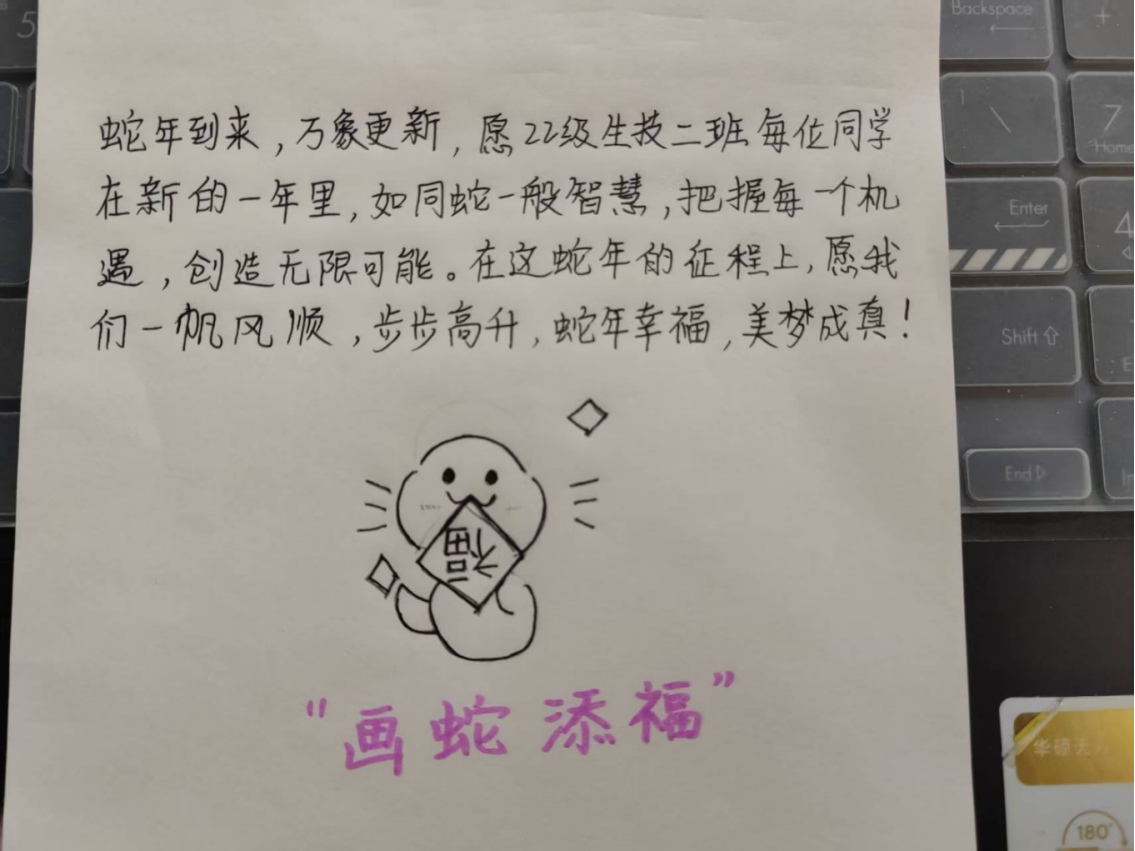 蛇年到来，万象更新，愿22级生技二班每位同学
在新的一年里，如同蛇一般智慧，把握每一个机
遇，创造无限可能。在这蛇年的征程上，愿我
们一帆风顺，步步高升，蛇年幸福，美梦成真！
福
“画蛇添福”
5
Backspace
+
\
7
Home
Enter
4
Shift
End
华硕无
180°